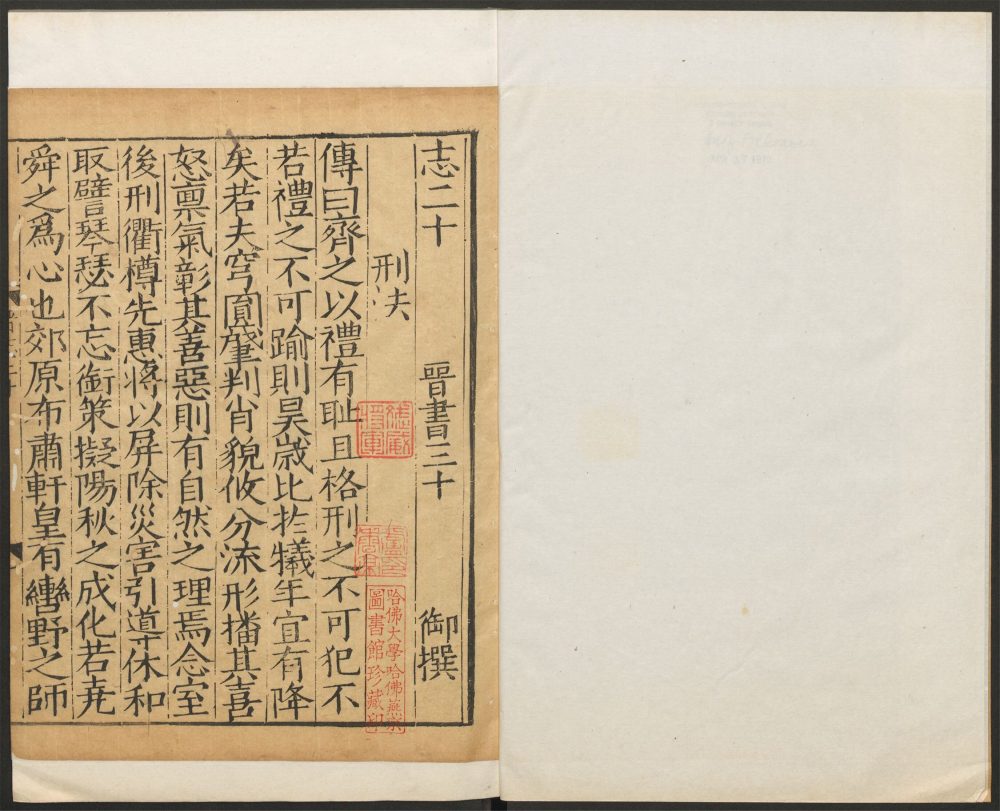 志二十 晉書三十 御撰
刑法
傳曰齊之以禮有恥且格刑之不可犯不
若禮之不可踰則昊歲比於犧年宜有降
矣若夫穹圓肇判肖貌攸分流形播其喜
怒禀氣彰其善惡則有自然之理焉念室
後刑衢樽先惠將以屏除災害引導休和
取譬琴瑟不忘銜策擬陽秋之成化若堯
舜之爲心也郊原布肅軒皇有轡野之師
哈佛大學哈佛燕京
圖書館珍藏印